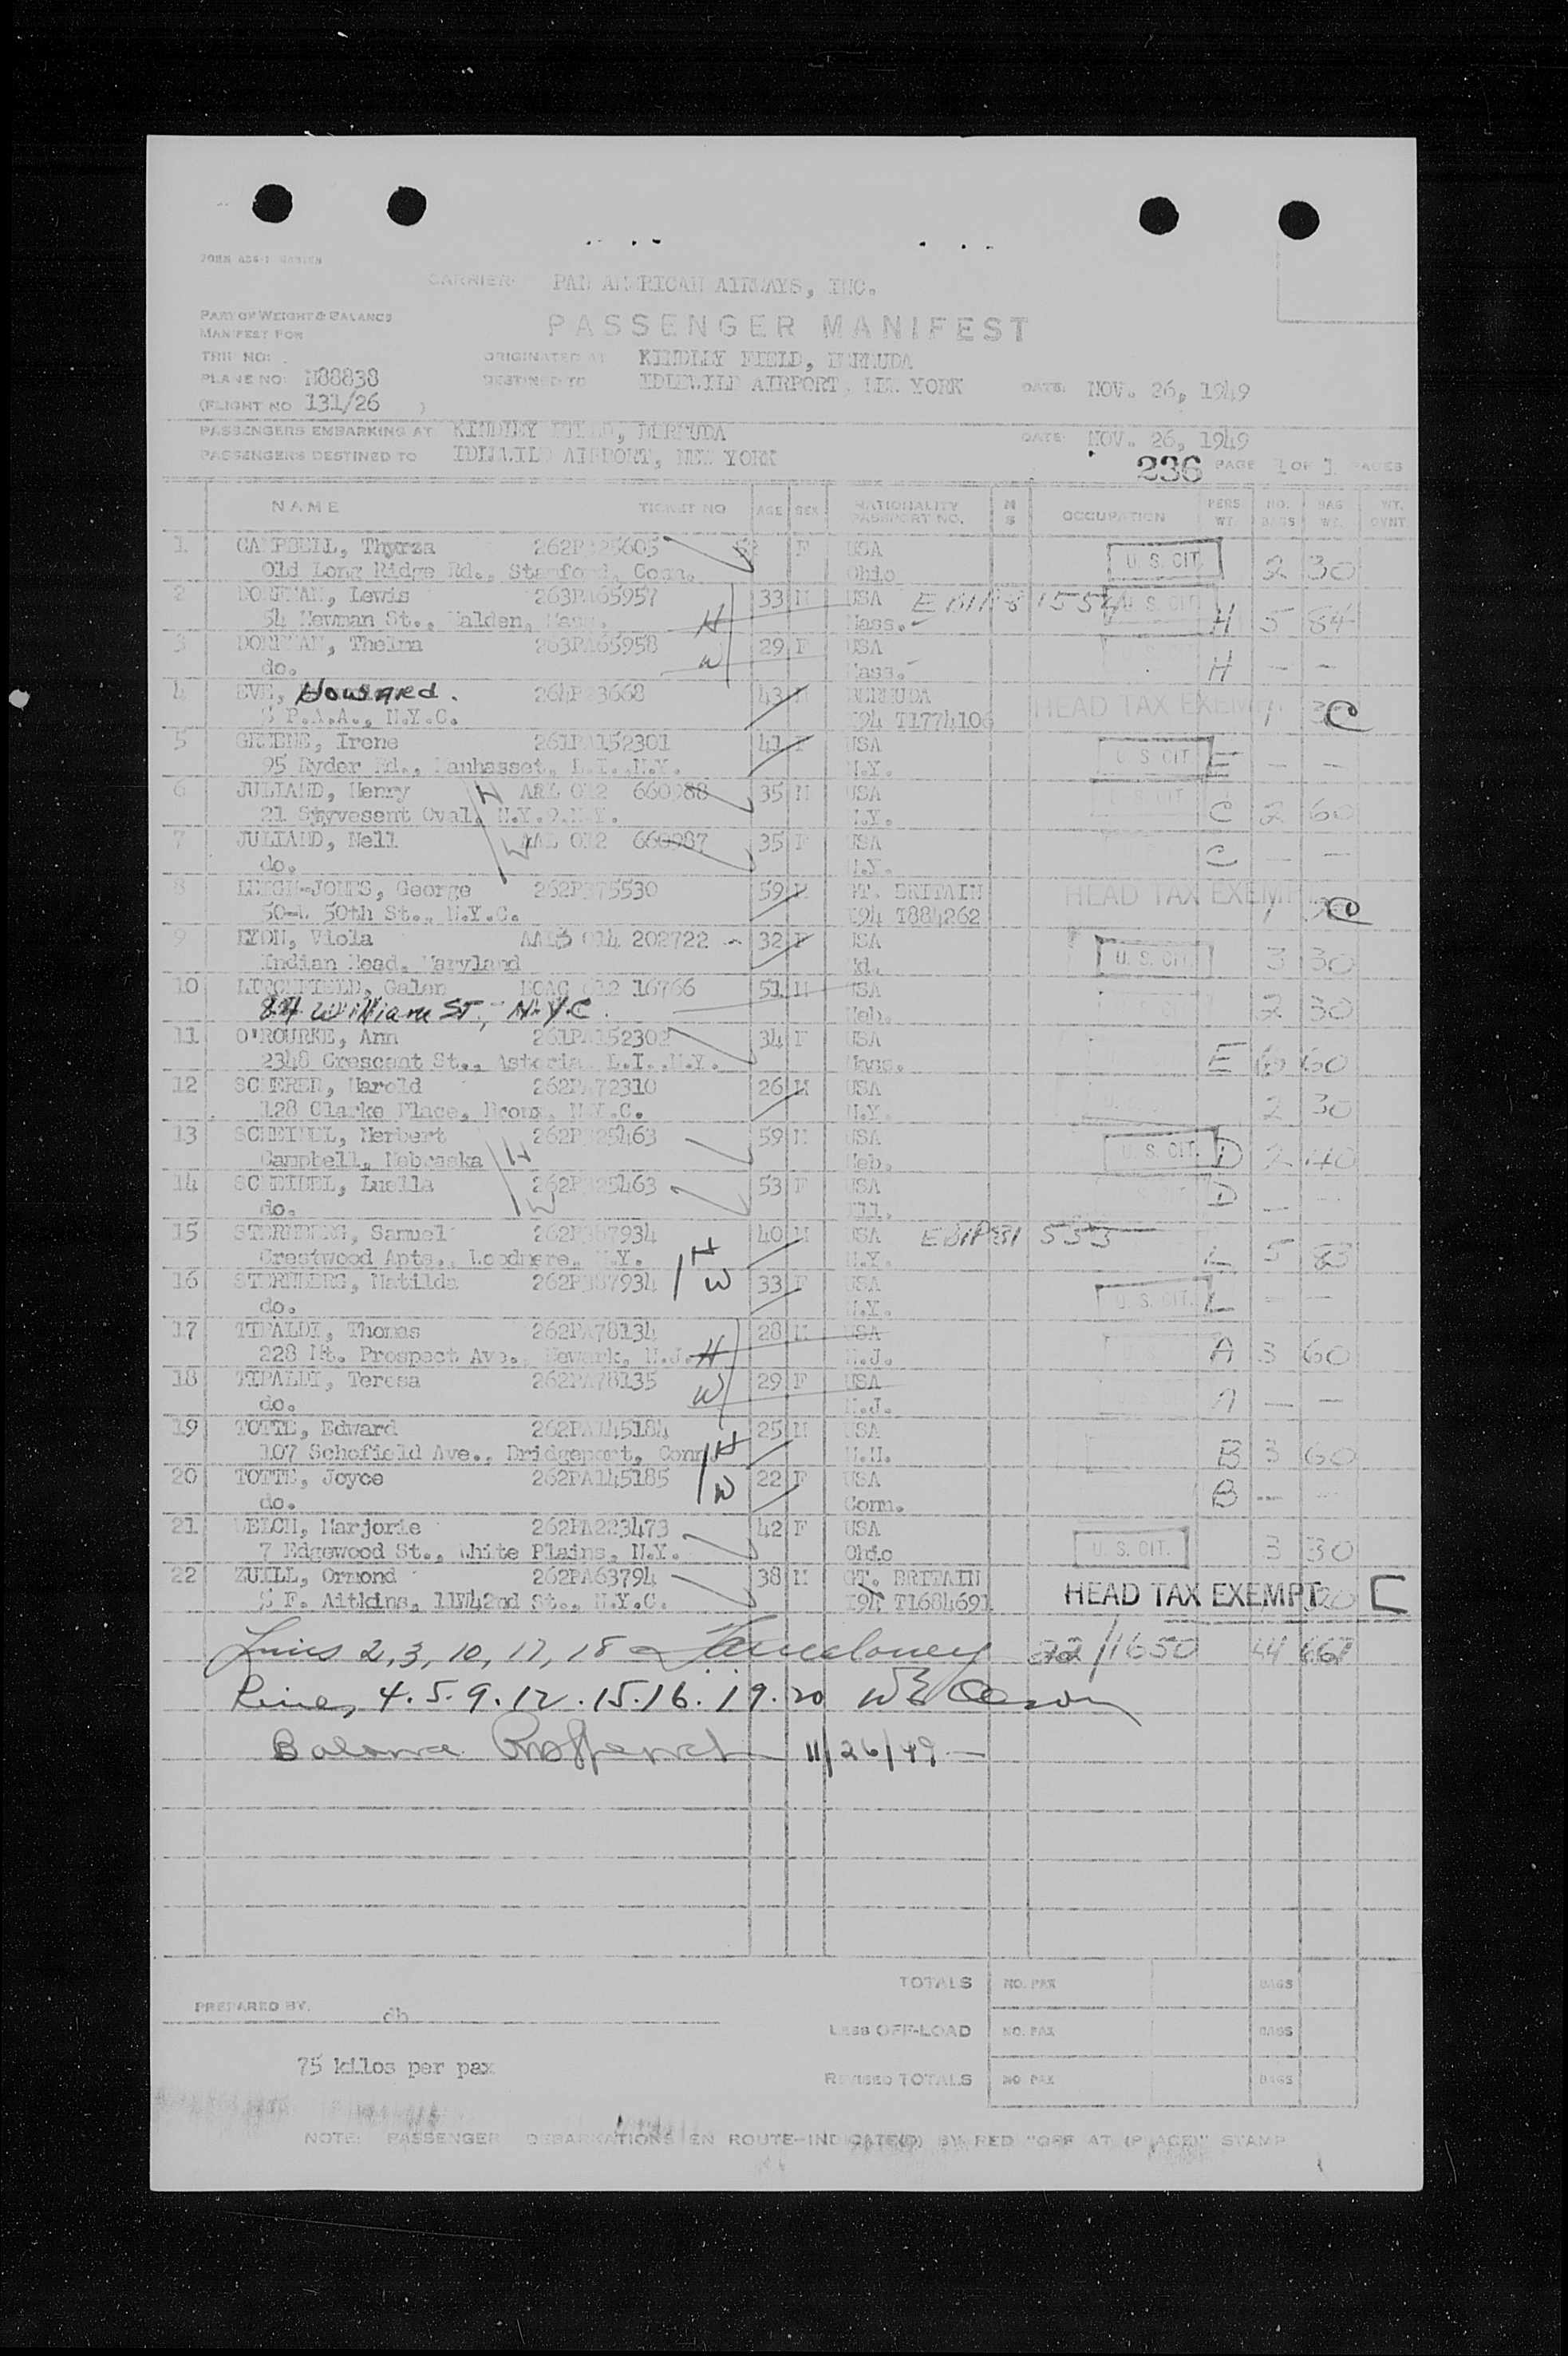 CARRIER: PAN AMERICAN AIRWAYS, INC.
PART OF WEIGHT & BALANCE
MANIFEST FOR
PASSENGER MANIFEST
TRIP NO:
ORIGINATED AT KINDLEY FIELD, BERMUDA
PLANE NO: N88838
DESTINED TO IDLEWILD AIRPORT, NEW YORK DATE: NOV. 26, 1949
(FLIGHT NO 131/26 )
PASSENGERS EMBARKING AT KINDLEY FIELD, BERMUDA DATE: NOV. 26, 1949
PASSENGERS DESTINED TO IDLEWILD AIRPORT, NEW YORK 236 PAGE 1 OF 1 PAGES
NAME TICKET NO AGE SEX NATIONALITY PASSPORT NO. M S OCCUPATION PERS. WT. NO. BAGS BAG WT. WT. OVNT
1 CAMPBELL, Thyrza F USA U. S. CIT. 2 30
Old Long Ridge Rd., Stamford, Conn. Ohio
2 Lewis 263PA65957 33 M USA U. S. CIT H 5 84
54 Newman St., Malden, Mass. H Mass.
3 Thelma 263PA65958 29 F USA H — —
do. W Mass.
4 EVE, Howard. 43 M BERMUDA HEAD TAX EXEMPT 1 C
% P.A.A., N.Y.C. I94 T1774106
5 GREENE, Irene 261PA152301 41 F USA U. S. CIT E — —
95 Ryder Rd., Manhasset, L.I. N.Y. N.Y.
6 JULIAND, Henry AAL 012 660988 35 M USA U. S. CIT C 2 60
21 Styvesent Oval, N.Y.9.N.Y. H N.Y.
7 JULIAND, Nell AAL 012 660987 35 F USA C — —
do. W N.Y.
8 LEIGH-JONES, George 59 M GT. BRITAIN HEAD TAX EXEMPT 1 C
50th St., N.Y.C. I94 T884262
9 LYON, Viola 014 202722 32 F USA U. S. CIT. 3 30
Indian Head, Maryland Md.
10 Galen BOAC 012 16766 51 M USA 2 30
84 William ST, N.Y.C. Neb.
11 O'ROURKE, Ann 261PA152302 34 F USA E 60
2348 Crescent St., Astoria, L.I. N.Y. Mass.
12 Harold 262PA72310 26 M USA 2 30
128 Clarke Place, Bronx, N.Y.C. N.Y.
13 SCHEIDEL, Herbert 59 M USA U. S. CIT. D 2 40
Campbell, Nebraska H Neb.
14 SCHEIDEL, Luella 53 F USA D —
do. W Ill.
15 STERNBERG, Samuel 40 M USA L 5 83
Crestwood Apts., Woodmere, N.Y. H N.Y.
16 STERNBERG, Matilda W 33 F USA U. S. CIT. L — —
do. N.Y.
17 TIPALDI, Thomas 262PA78134 28 M USA A 3 60
228 Mt. Prospect Ave., Newark, N.J. H N.J.
18 TIPALDI, Teresa 262PA78135 29 F USA A — —
do. W N.J.
19 TOTTE, Edward 262PA145184 25 M USA B 3 60
107 Schofield Ave., Bridgeport, Conn. H N.H.
20 TOTTE, Joyce 262PA145185 22 F USA B — —
do. W Conn.
21 WELCH, Marjorie 262PA223473 42 F USA U. S. CIT. 3 30
7 Edgewood St., White Plains, N.Y. Ohio
22 ZUILL, Ormond 262PA63794 38 M GT. BRITAIN HEAD TAX EXEMPT 20 C
% F. Aitkins, 11W42nd St., N.Y.C. I94 T1684691
Lines 2, 3, 10, 17, 18 22/1650 44
Lines 4.5.9.12.15.16.19.20
Balance 11/26/49
TOTALS NO. PAX BAGS
PREPARED BY. db
LESS OFF-LOAD NO. PAX BAGS
75 kilos per pax
REVISED TOTALS NO PAX BAGS
NOTE: PASSENGER DEBARKATIONS EN ROUTE-INDICATE(D) BY RED "OFF AT (PLACE)" STAMP